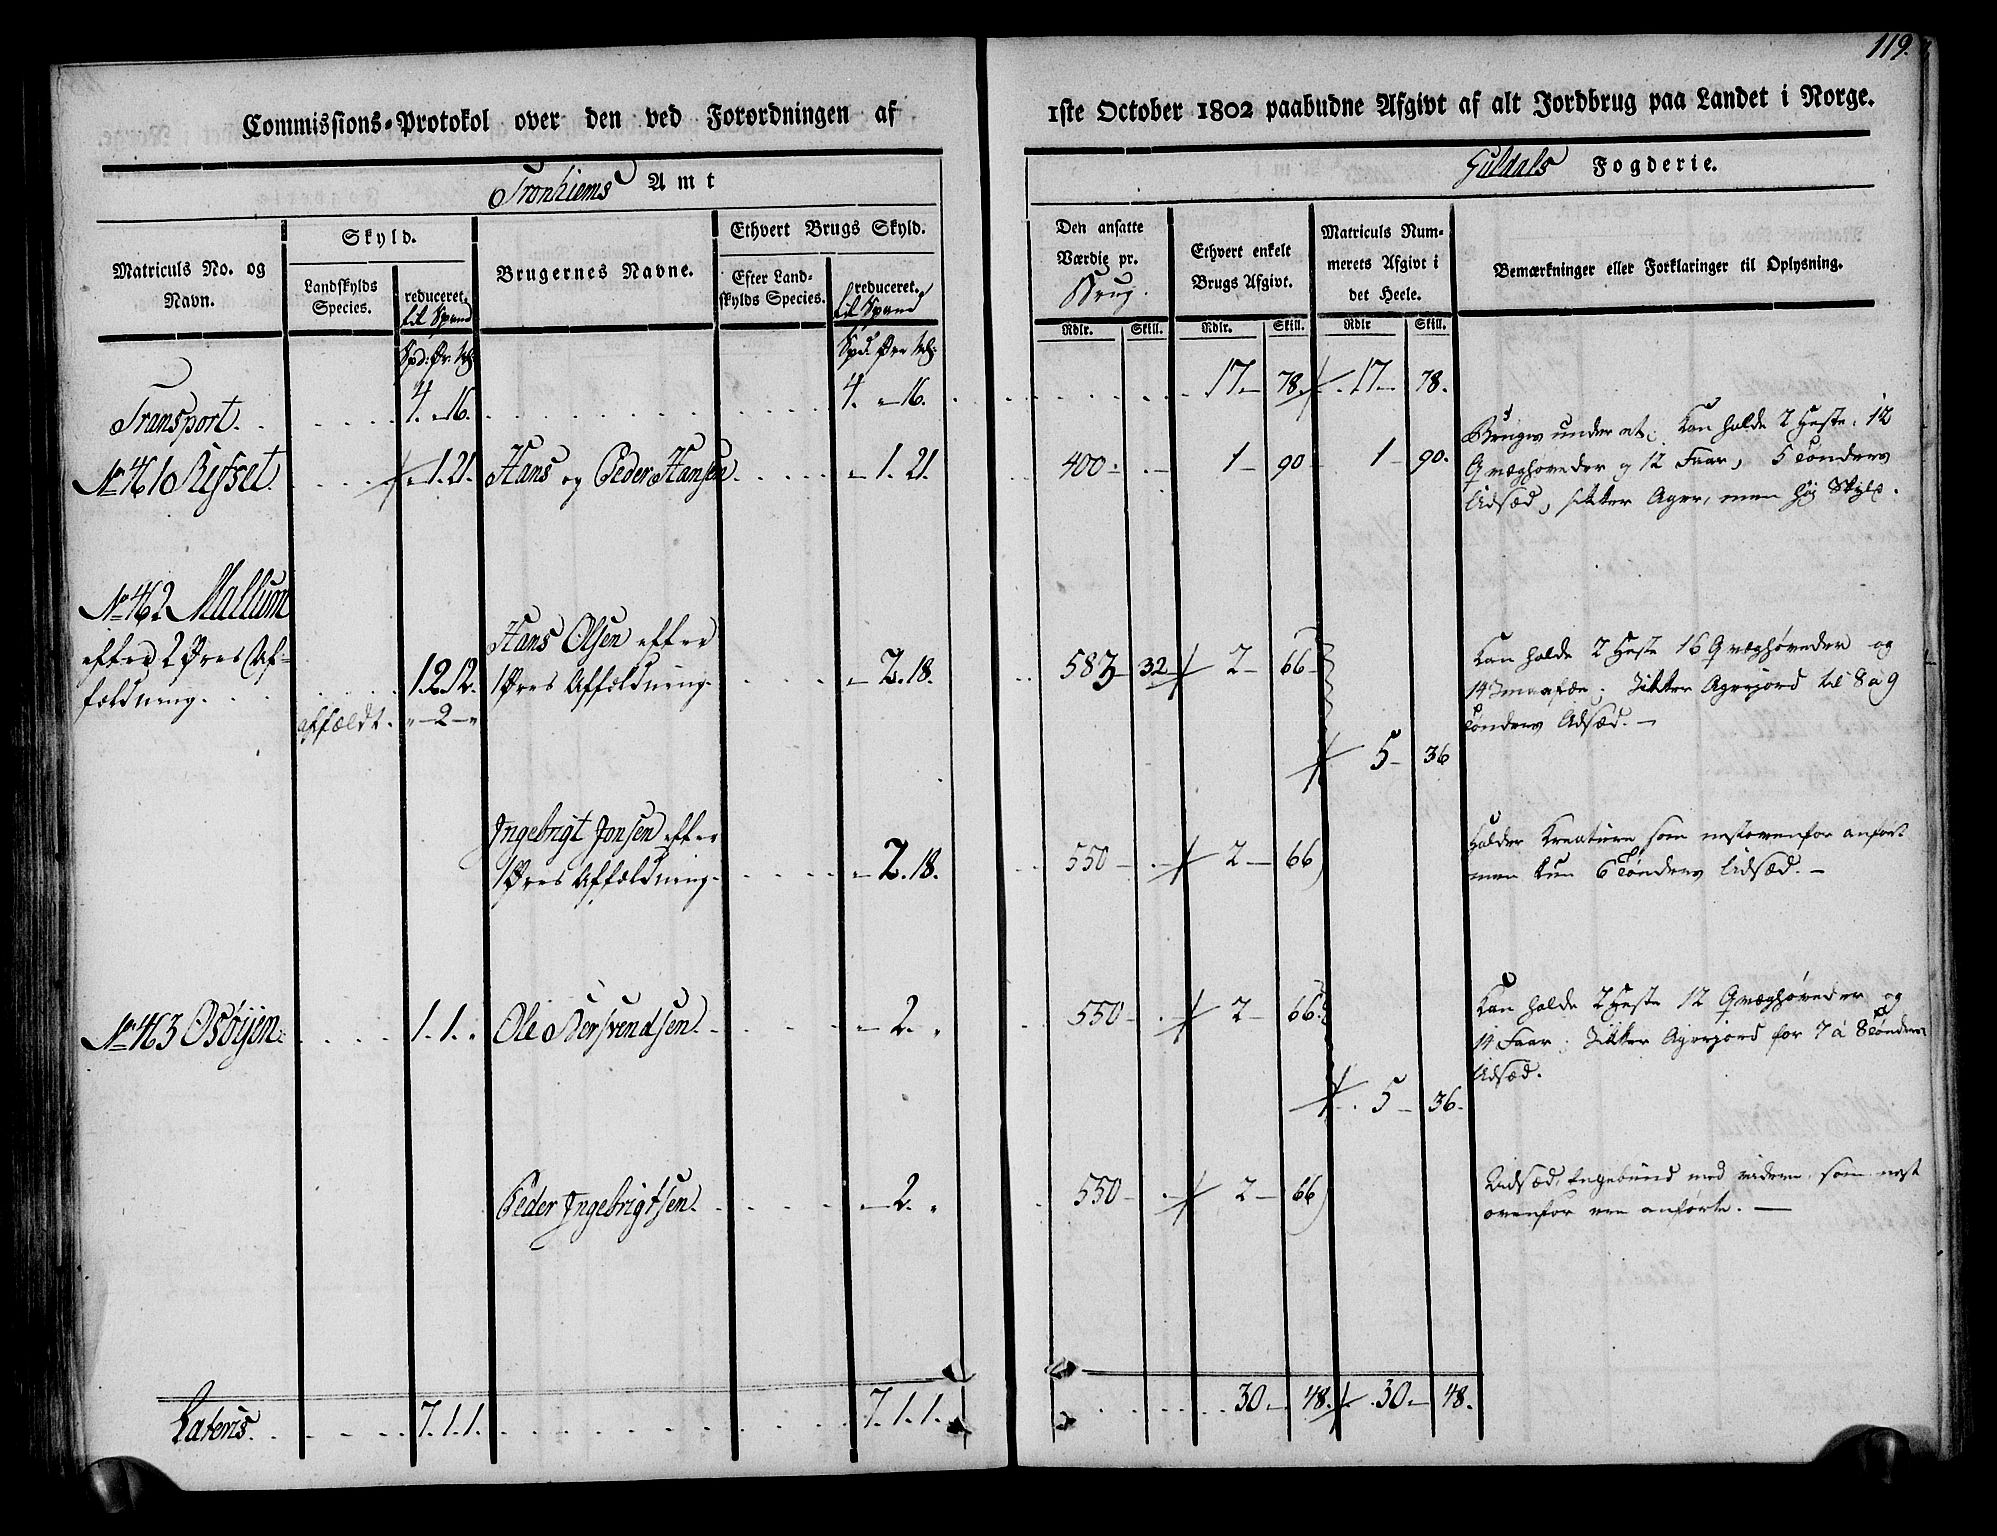 119.
Commissions-Protokol over den ved Forordningen af 1ste October 1802 paabudne Afgivt af alt Jordbrug paa Landet i Norge.
Tronhiems Amt
Guldals Fogderie.
Matriculs No. og Navn.
Skyld.
Landskylds Species.
reduceret til Spand
Brugernes Navne.
Ethvert Brugs Skyld.
Efter Landskylds Species.
reduceret til Spand
Den ansatte Værdie pr. Brug.
Ethvert enkelt Brugs Afgivt.
Matriculs Nummerets Afgivt i det Heele.
Bemærkninger eller Forklaringer til Oplysning.
Rdlr. Skill. Rdlr. Skill. Rdlr Skill.
Transport. 4. " 16. 4. " 16. 17 78. 17 78.
No 461 Risset. " 1. 21. Hans og Peder Hansen " 1. 21. 400 1 90 1 90.
Kan holde 2 Heste, 12
Qvæghøveder og 12 Faar, 5 Tønders
Udsæd, sikker Ager, men høj Skyld.
No 462 Mallum
efter 2 Øres Af-
fældning. 1. 2. 12.
affældt. " 2 "
Hans Olsen efter
1 Øres Affældning. " 2. 18. 583 32 2 66
Kan holde 2 Heste 16 Qvæghøveder og
14 Smaafæe; Sikker Agerjord til 8 a 9
Tønders Udsæd.
5 36
Ingebrigt Jonsen efter
1 Øres Affældning. " 2. 18. 550 2 66
Holder Kreature som nestovenfor anført
men kun 6 Tønders Udsæd.
No 463 Osøijen. 1. 1. " Ole Estensen. " 2. " 550 2 66
Kan holde 2 Heste 12 Qvæghøveder og
14 Faar; Sikker Agerjord for 7 a 8 Tønders
Udsæd.
5 36
Peder Ingebrigtsen. " 2. " 550 2 66
Udsæd, Engebund med videre, som nest
ovenfor ere anførte.
Lateris. 7. 1. 1. 7. 1. 1. 30 48. 30 48.